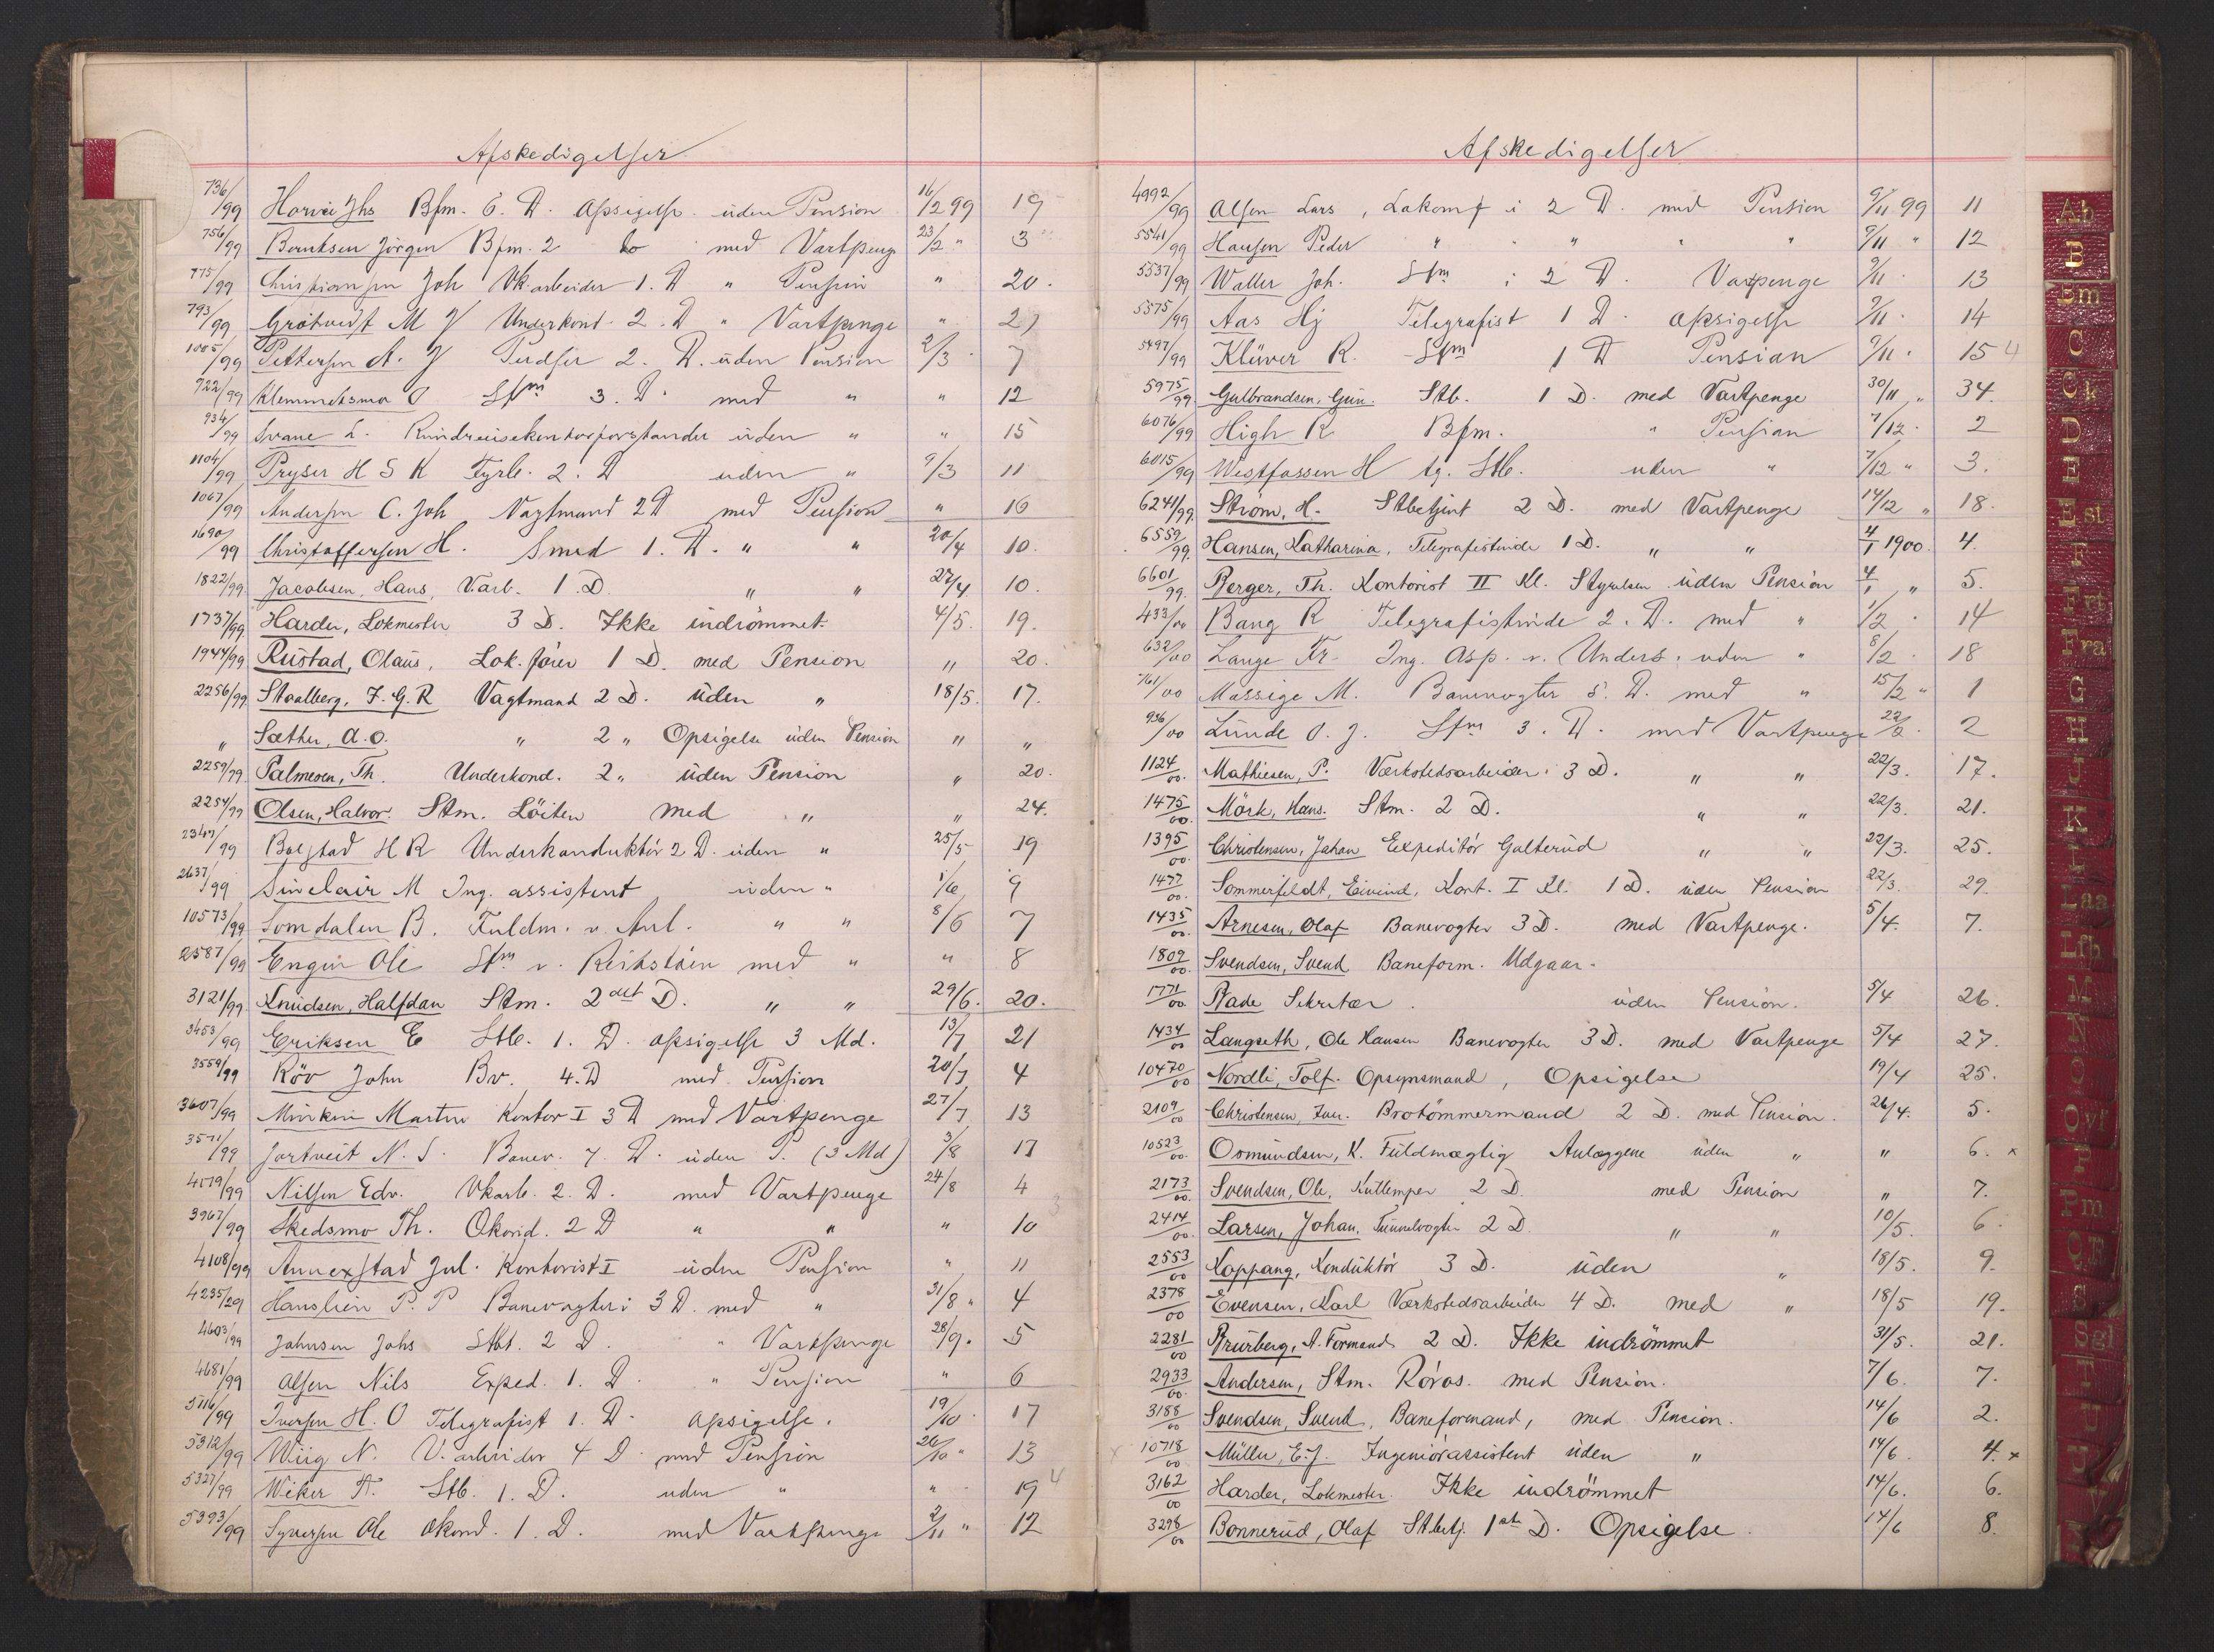 Afskedigelser
736/99 Horvei Jhs Bfm. 6. D. Opsigelse uden Pension 16/2 99 19
756/99 Berntsen Jörgen Bfm. 2 do med Vartpenge 23/2 " 3
775/99 Christiansen Joh Vk.arbeider 1. D " Pension " 20.
793/99 M Underkond. 2. D " Vartpenge "
1005/99 Pettersen A. 2. D. uden Pension 2/3 7
722/99 O Stm 3. D. med " " 12
934/99 Svane L. uden " " 15
1104/99 Pryser H S K Fyrb. 2. D uden " 9/3 11
1067/99 Andersen C. Joh Vagtmand 2 D med Pension " 16
1690/99 Christoffersen H. Smed 1. D. " " 20/4 10.
1822/99 Jacobsen, Hans, V.arb. 1. D. " " 27/4. 10.
1737/99 Harder, Lokmester 3 D. Ikke indrömmet. 4/5. 19.
1944/99 Rustad, Olaus, Lok.förer 1 D. med Pension " 20.
2256/99 Staalberg, F. G. R Vagtmand 2 D. uden " 18/5. 17.
" Sæther, A. O. " 2 " Opsigelse uden Pension " "
2259/99 Palmesen, Th. Underkond. 2 " uden Pension " 20.
2254/99 Olsen, Halvor. Stm. Löiten med " " 24.
2347/99 Bolstad H R Underkonduktör 2 D. uden " 25/5 19
2637/99 Sinclair M Ing. assistent uden " 1/6 9
10573/99 Somdalen B. Fuldm. v. Anl. " " 8/6 7
2587/99 Engen Ole Stm v. med " " 8
3121/99 Knudsen, Halfdan Stm. 2det D. " " 29/6. 20.
3453/99 Eriksen E Stb. 1. D. opsigelse 3 Md. 13/7 21
3559/99 Röv John Bv. 4. D med Pension 20/7 4
3607/99 Martin Kontor I 3 D med Vartpenge 27/7 13
3571/99 Jortveit N. S. Banev. 7. D. uden P. (3 Md) 3/8 17
4519/99 Nilsen Edv. Vkarb. 2. D. med Vartpenge 24/8 4
3967/99 Skedsmo Th. Okond. 2 D " " " 10
4108/99 Annexstad Jul. Kontorist I uden Pension " 11
4235/99 P. P Banevogter i 3 D. med " 31/8 " 4
4603/99 Johnsen Johs Stbt. 2 D. " Vartpenge 28/9. 5
4681/99 Olsen Nils Exped. 1. D. " Pension " 6
5116/99 Iversen H. O Telegrafist 1. D. opsigelse. 19/10. 17
5312/99 Wiig N. V. arbeider 4 D. med Pension 26/10 " 13
5327/99 Weker A. Stb. 1. D. uden " " 19 4
5393/99 Syversen Ole Okond. 1. D. med Vartpenge 2/11 " 12
Afskedigelser
4992/99 Olsen Lars, Lokomf i 2 D. med Pension 9/11 99 11
5541/99 Hansen Peder " " " " " 9/11 " 12
5537/99 Waller Joh. Stm i 2 D. Vartpenge 9/11. 13
5575/99 Aas Hj Telegrafist 1 D. opsigelse 9/11. 14
5497/99 Klüwer R. Stm 1 D Pension 9/11. 15 4
5975/99 Gulbrandsen, Gun. Stb. 1 D. med Vartpenge 30/11 " 34.
6076/99 High R Bfm. " Pension 7/12. 2
6015/99 H tg. Stb. uden " 7/12 " 3.
6241/99. Strøm, H. Stbetjent 2 D. med Vartpenge 14/12 " 18.
6559/99. Hansen, Katharina, Telegrafistinde 1 D. " " 4/1 1900. 4.
6601/99. Berger, Th. Kontorist II Kl. Styrelsen uden Pension 4/1 " 5.
433/00 Bang R Telegrafistinde 2. D. med " 1/2. 14
632/00 Lange Fr. Ing. Asp. v. Unders. uden " 8/2. 18
761/00 Massige M. Banevogter 5. D. med " 15/2 " 1
936/00 Lunde O. J. Stm 3. D. med Vartpenge 22/2. 2
1124/00. Mathiesen, P. Værkstedsarbeider i 3 D. " " 22/3. 17.
1475/00. Mörk, Hans. Stm. 2 D. " " 22/3. 21.
1395/00. Christensen, Johan Expeditör Galterud " " 22/3. 25.
1477/00. Sommerfeldt, Eivind, Kont. I Kl. 1 D. uden Pension 22/3. 29.
1435/00. Arnesen, Olaf Banevogter 3 D. med Vartpenge. 5/4. 7.
1809/00. Svendsen, Svend Baneform. Udgaar.
1771/00. Rade Sekretær. uden Pension. 5/4 26.
1434/00 Langseth, Ole Hansen Banevogter 3 D. med Vartpenge 5/4 27.
10470/00 Nordli, Tolf. Opsynsmand, Opsigelse 19/4 25.
2109/00 Christensen, Iver. Brotömmermand 2 D. med Pension. 26/4. 5.
10523/00. Osmundsen, K. Fuldmægtig Anlæggene uden " " 6. x
2173/00. Svendsen, Ole, Kullemper 2 D. med Pension " 7.
2414/00. Larsen, Johan. Tunnelvogter 2 D. " " 10/5. 6.
2553/00 Koppang, Konduktör 3 D. uden " 18/5. 9.
2378/00 Evensen, Karl Værkstedsarbeider 4 D. med " 18/5 19.
2281/00 A. Formand 2 D. Ikke indrömmet 31/5. 21.
2933/00. Andersen, Stm. Röros. med Pension. 7/6. 7.
3188/00 Svendsen, Svend, Baneformand, med Pension. 14/6 2.
x 10718/00. Müller, E. J. Ingeniörassistent uden " 14/6. 4. x
3162/00 Harder, Lokmester. Ikke indrömmet 14/6. 6.
3298/00 Bonnerud, Olaf Stbetj. 1ste D. Opsigelse. 14/6 8.
Ab
B
Bm
C
Ck
D
E
Est
F
Fot
Fra
G
H
J
K
L
Laa
Lfb
M
N
O
Ovf
P
Pm
S
Sgl
T
U
V